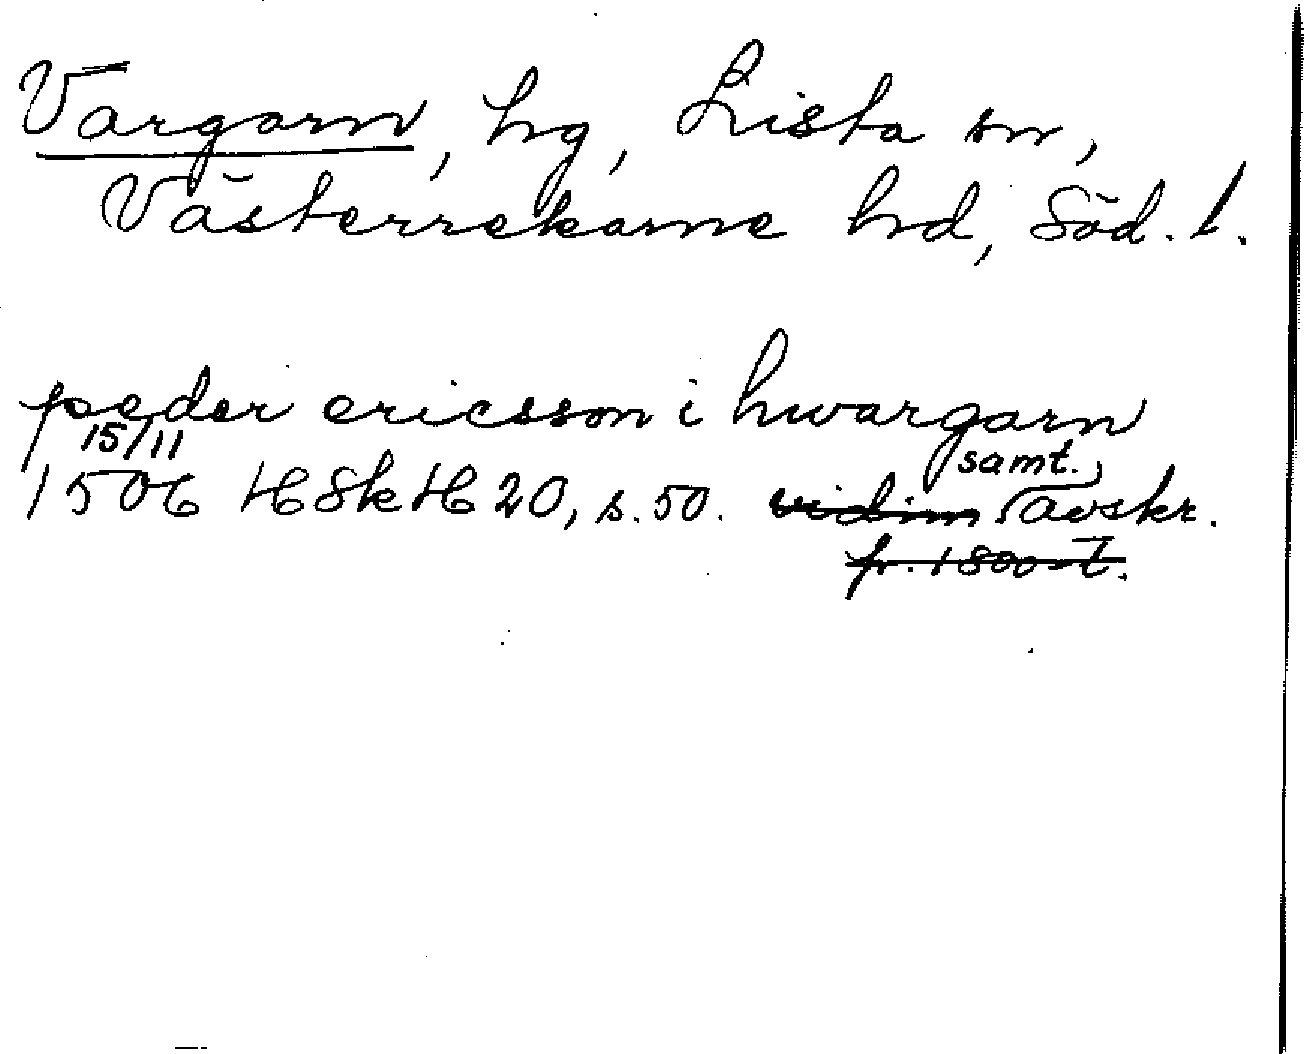 Vargarn, hg, Lista sn,
Västerrekarne hd, Söd. l.
peder ericsson i hwargarn
15/11
1506 HSkH 20, s. 50. vidim samt. avskr.
fr. 1800-t.